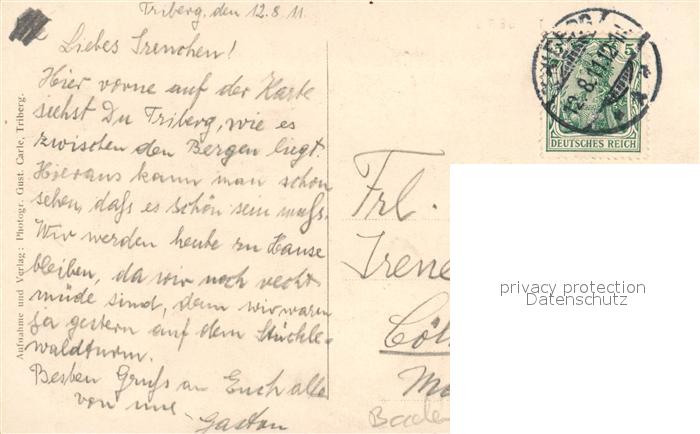 Triberg, den 12.8.11.
Liebes Irenchen!
Hier vorne auf der Karte
siehst Du Triberg, wie es
zwischen den Bergen liegt.
Hieraus kann man schon
sehen, daſs es schön sein muſs.
Wir werden heute zu Hause
bleiben, da wir noch recht
müde sind, denn wir waren
ja gestern auf dem Stöckle-
waldturm.
Besten Gruſs an Euch alle
von mir
Gaston
Aufnahme und Verlag: Photogr. Gust. Carle, Triberg.
5
DEUTSCHES REICH
Frl.
Irene
Cöl
Baden
privacy protection
Datenschutz